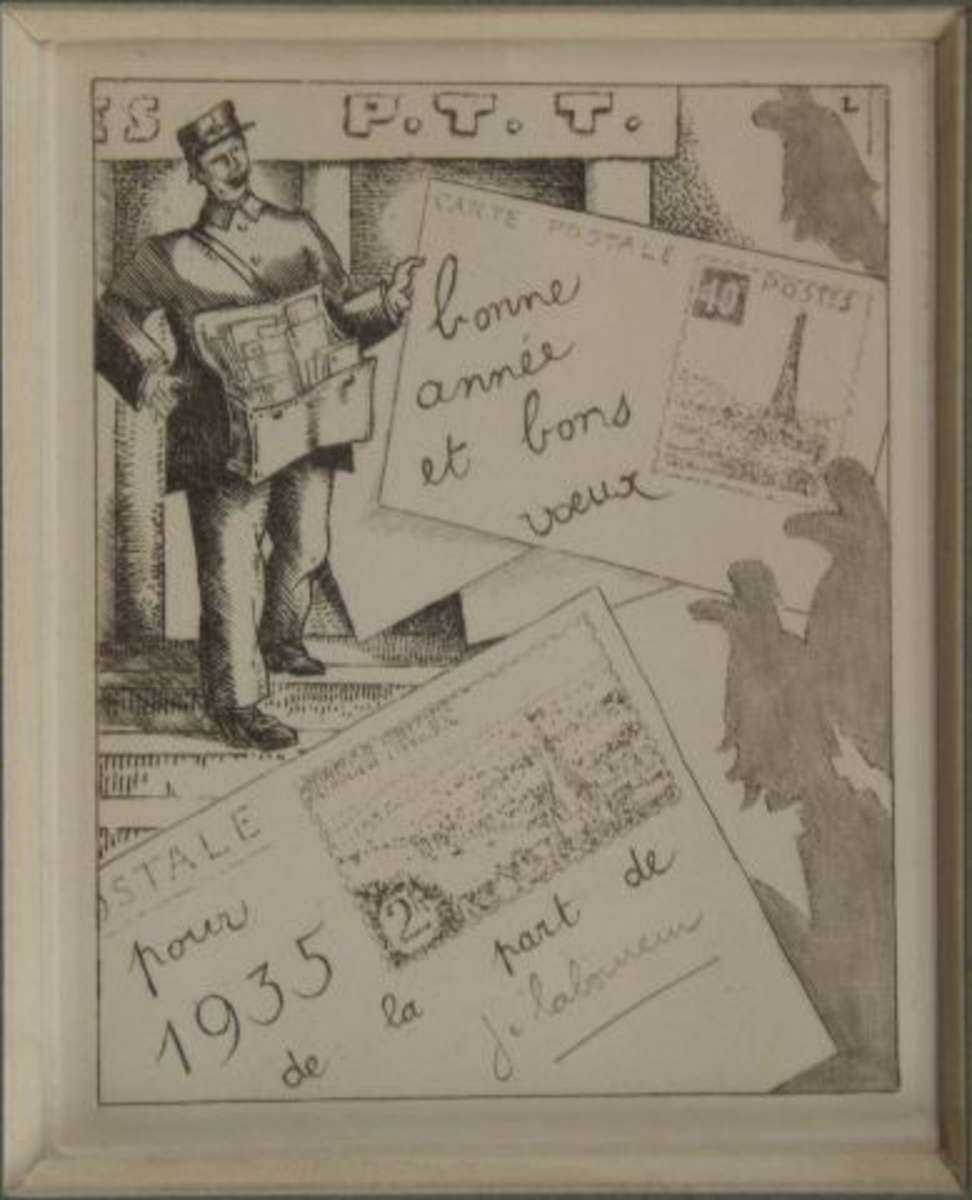 ES P.T.T.
L
CARTE POSTALE
40 POSTES
bonne
année
et bons
vœux
OSTALE
pour
1935
2
de la part de